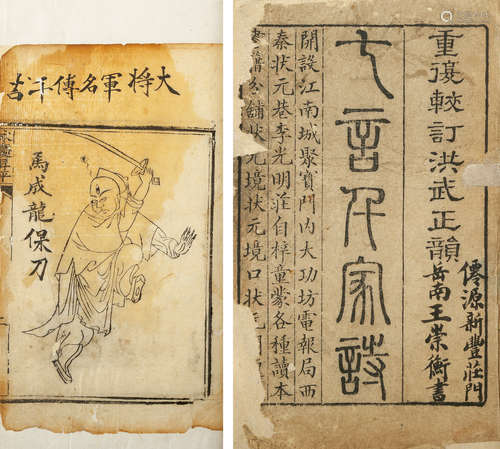 大將軍名傳千古
馬成龍保刀
重復較訂洪武正韻
僊源新豐莊門
岳南王崇衡書
七言千家詩
開設江南城聚寶門內大功坊電報局西
秦狀元巷李光明莊自梓童蒙各種讀本
分舖狀元境狀元境口狀元